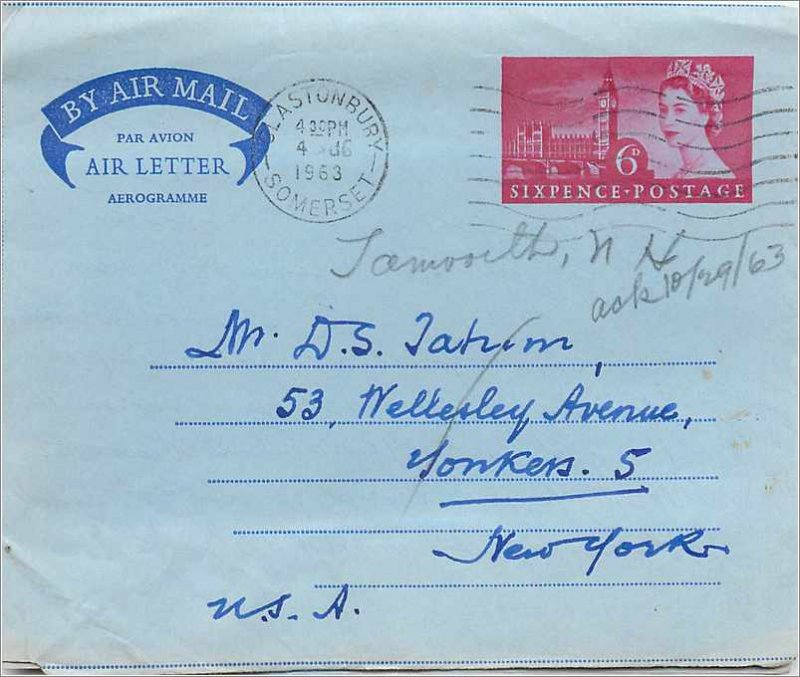 BY AIR MAIL
PAR AVION
AIR LETTER
AEROGRAMME
GLASTONBURY
4 30PM
4 AUG
1963
SOMERSET
6D
SIXPENCE·POSTAGE
Tamworth, N H
ack 10/29/63
Mr. D.S. Tatum,
53, Wellesley Avenue,
Yonkers. 5
New York
U.S.A.